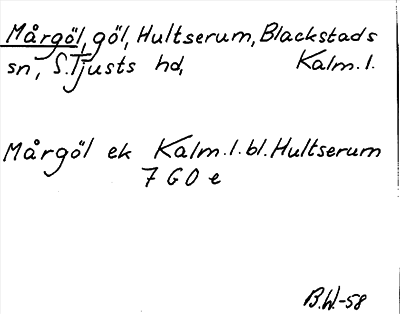 Mårgöl, göl, Hultserum, Blackstads
sn, S. Tjusts hd, Kalm. l.
Mårgöl ek Kalm. l. bl. Hultserum
7 G O e
B.W.-58